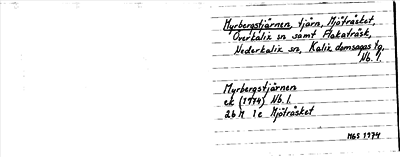 Myrbergstjärnen, tjärn, Mjöträsket,
Överkalix sn samt Flakaträsk,
Nederkalix sn, Kalix domsagas tg,
Nb. l.
Myrbergstjärnen
ek (1974) Nb. l.
26 M 1 c Mjöträsket
NGS 1974